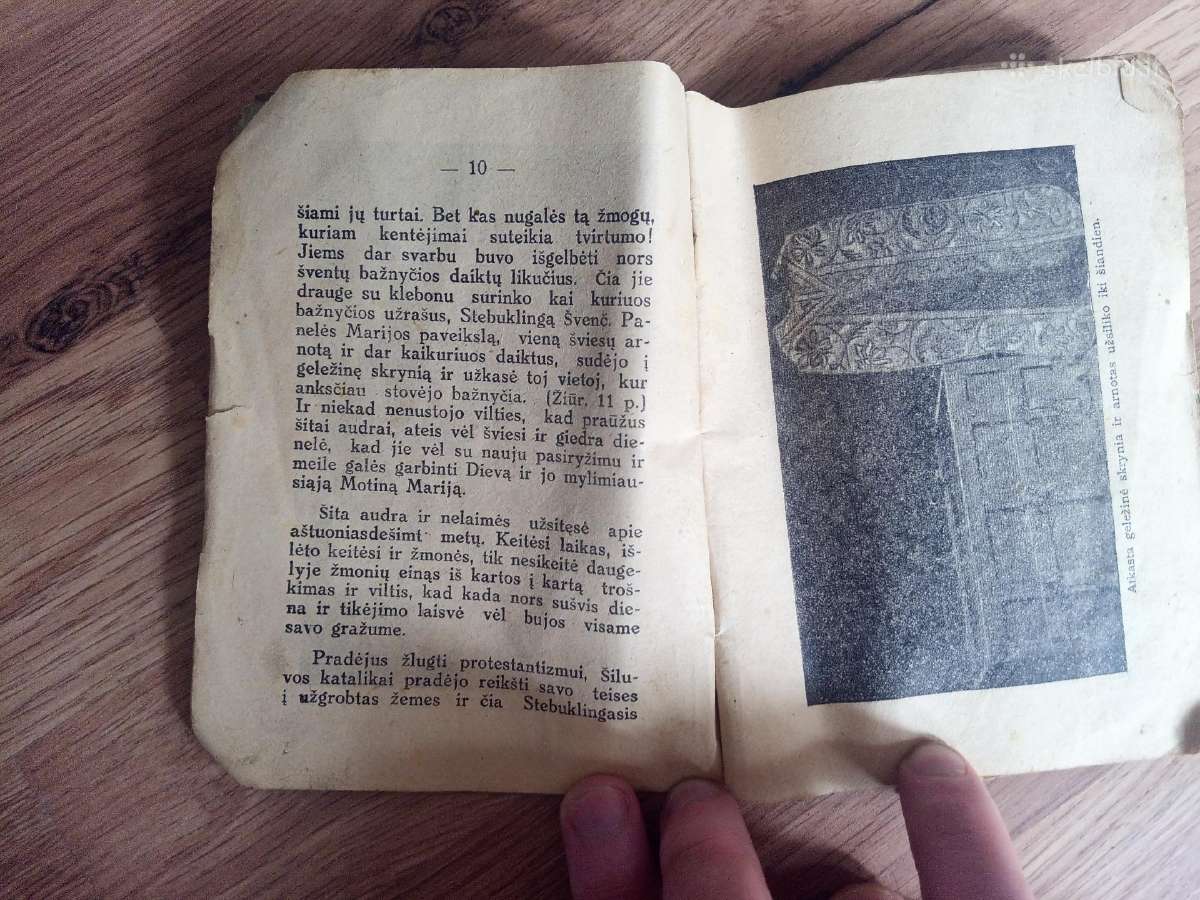 — 10 —
šiami jų turtai. Bet kas nugalės tą žmogų,
kuriam kentėjimai suteikia tvirtumo!
Jiems dar svarbu buvo išgelbėti nors
šventų bažnyčios daiktų likučius. Čia jie
drauge su klebonu surinko kai kuriuos
bažnyčios užrašus, Stebuklingą Švenč. Pa-
nelės Marijos paveikslą, vieną šviesų ar-
notą ir dar kaikuriuos daiktus, sudėjo į
geležinę skrynią ir užkasė toj vietoj, kur
anksčiau stovėjo bažnyčia. (Žiūr. 11 p.)
Ir niekad nenustojo vilties, kad praūžus
šitai audrai, ateis vėl šviesi ir giedra die-
nelė, kad jie vėl su nauju pasiryžimu ir
meile galės garbinti Dievą ir jo mylimiau-
siąją Motiną Mariją.
Šita audra ir nelaimės užsitęsė apie
aštuoniasdešimt metų. Keitėsi laikas, iš-
lėto keitėsi ir žmonės, tik nesikeitė dauge-
lyje žmonių einąs iš kartos į kartą troš-
kimas ir viltis, kad kada nors sušvis die-
na ir tikėjimo laisvė vėl bujos visame
savo gražume.
Pradėjus žlugti protestantizmui, Šilu-
vos katalikai pradėjo reikšti savo teises
į užgrobtas žemes ir čia Stebuklingasis
Atkasta geležinė skrynia ir arnotas užsiliko iki šiandien.
skelbiu.lt